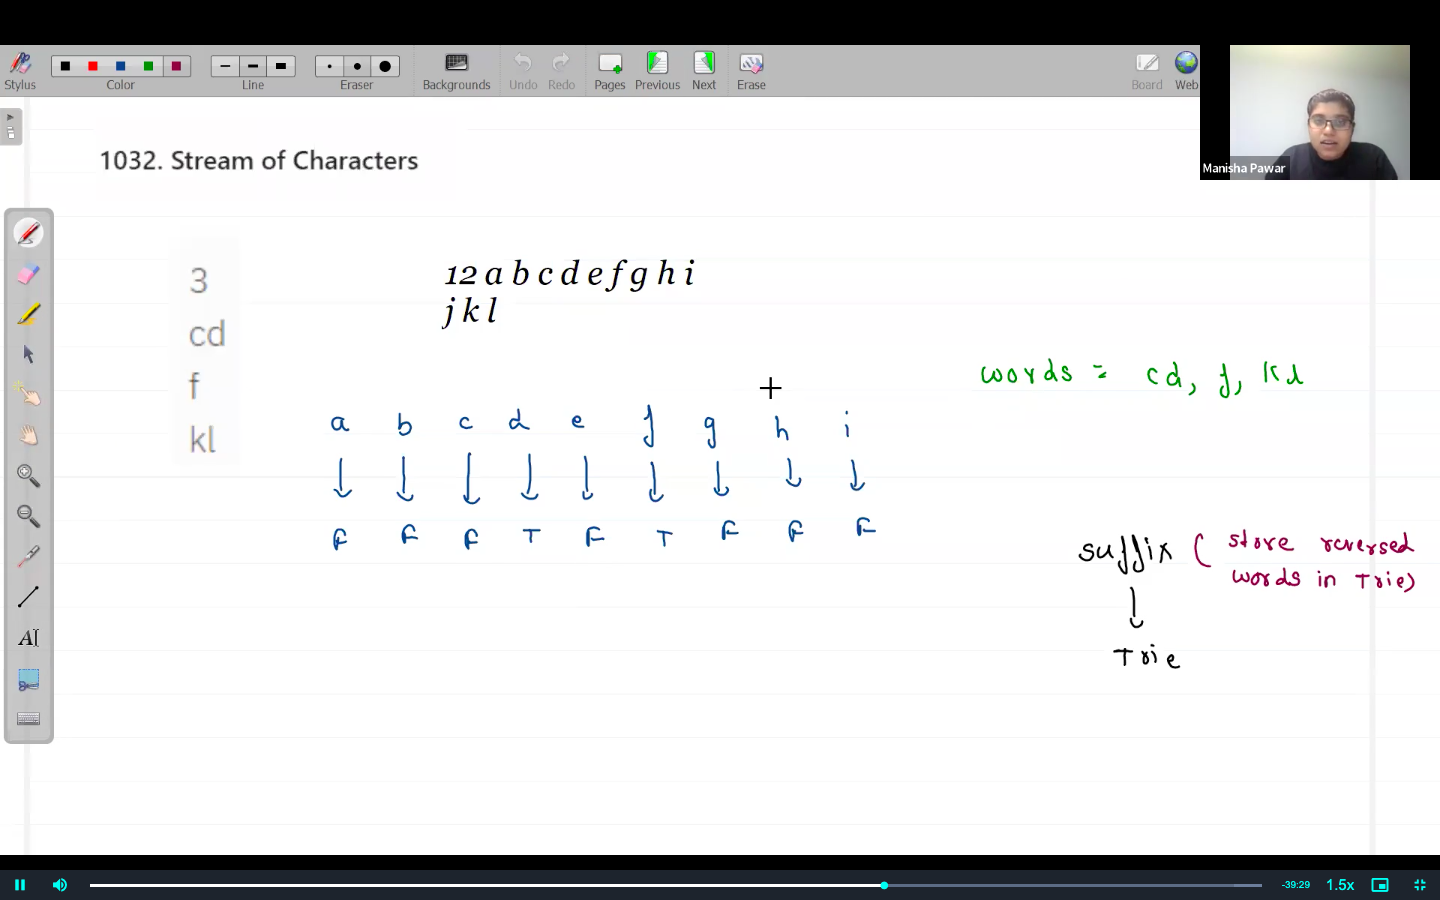 Stylus
Color
Line
Eraser
Backgrounds
Undo
Redo
Pages
Previous
Next
Erase
Board
Web
Manisha Pawar
1032. Stream of Characters
3
cd
f
kl
12 a b c d e f g h i
j k l
words = cd, f, kl
a b c d e f g h i
F F F T F T F F F
suffix ( store reversed
words in Trie)
Trie
AI
-39:29
1.5x